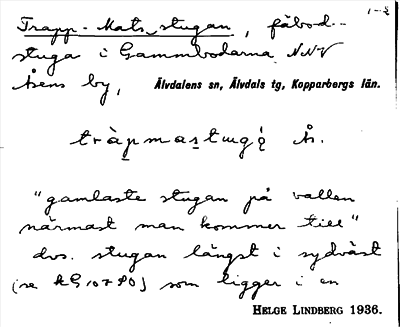 1-2
Trapp-Mats-stugan, fäbod-
stuga i Gammbodarna NNV
Åsens by, Älvdalens sn, Älvdals tg, Kopparbergs län.
Å.
"gamlaste stugan på vallen
närmast man kommer till"
dvs. stugan längst i sydväst
(se som ligger i en
HELGE LINDBERG 1936.